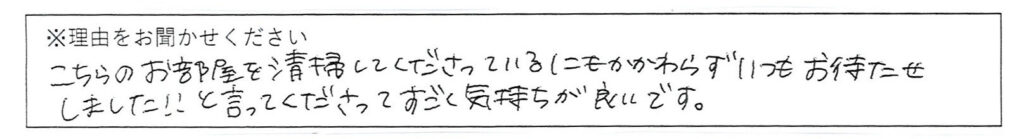 ※理由をお聞かせください
こちらのお部屋を清掃してくださっているにもかかわらずいつもお待たせ
しました!! と言ってくださってすごく気持ちが良いです。